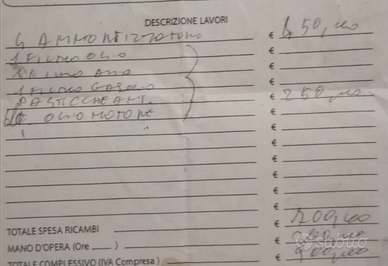 DESCRIZIONE LAVORI
4 AMMORTIZZATORI € 450,00
1 FILTRO OLIO €
€
1 FILTRO GASOLIO €
PASTICCHE ANT. € 250,00
OLIO MOTORE €
€
€
€
€
€
TOTALE SPESA RICAMBI € 700,00
MANO D'OPERA (Ore ) € 200,00
TOTALE COMPLESSIVO (IVA Compresa) € 900,00
subito